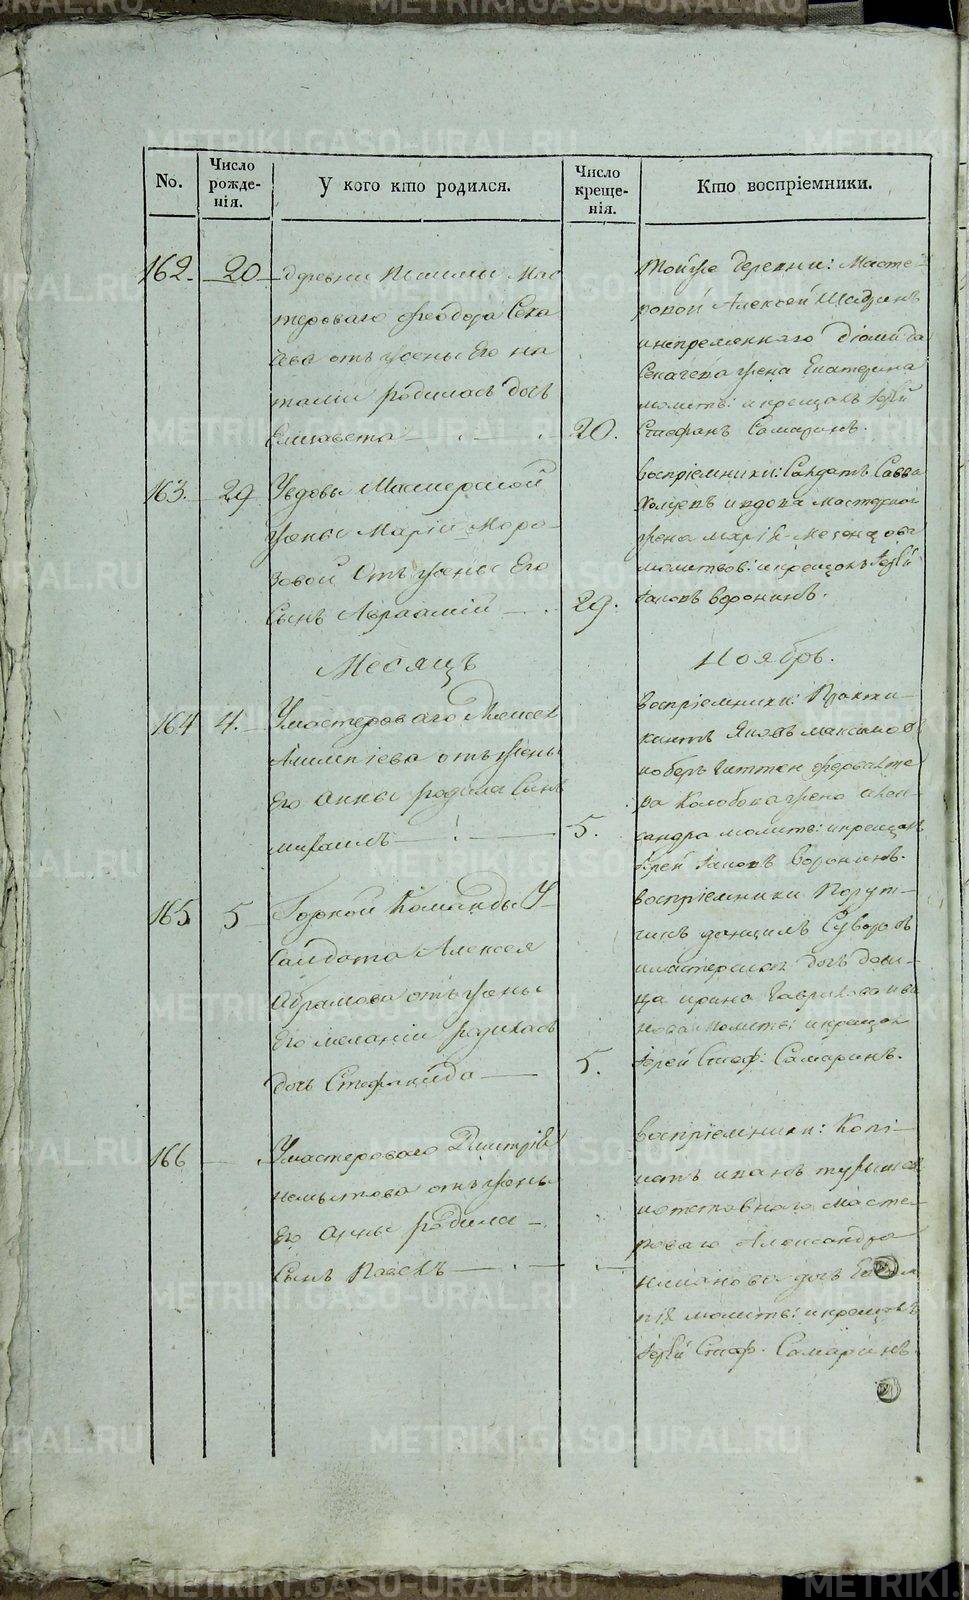 No.
Число рожде-нія.
У кого кто родился.
Число креще-нія.
Кто воспріемники.
162.
20
деревни Пышмы Мас
тероваго Феодора Сека
чева отъ жены Его На
таліи родилась дочь
Елисавета
20.
Тойже деревни: Масте-
ровой Алексей
и непременнаго Діомида
Секачева жена Екатерина
молитв: и крещалъ Іерей
Стефанъ Самаринъ.
163.
29
У вдовы Мастерской
жены Маріи Моро-
зовой Отъ жены Его
Сынъ Авраамій
29.
Воспріемники: Салдатъ Савва
и вдова Мастерская
жена Марія
молитвов: и крещалъ Іерей
Іаковъ Воронинъ.
Месяцъ
Ноябрь.
164
4.
У мастероваго Моисея
Алимпіева отъ жены
Его Анны родился Сынъ
Михаилъ
5.
Воспріемники: Практи-
кантъ Яковъ Максимовъ
Колобова жена Алек-
сандра молитв: и крещалъ
Іерей Іаковъ Воронинъ.
165
5
Горной Команды У
Салдата Алексея
Абрамова отъ жены
Его Меланіи родилась
дочь Стефанида
5.
воспріемники Порут-
чикъ Данилъ Суворовъ
и мастерская дочь деви-
ца Ирина Гаврилова Ива
нова молитв: и крещалъ
Іерей Стеф: Самаринъ.
166
У мастероваго Димитрія
отъ жены
Его Анны родился
Сынъ Павелъ
Воспріемники: Копі-
истъ Иванъ
и отставнаго масте-
роваго Александра
дочь
молитв: и крещалъ
Іерей Стеф. Самаринъ.
METRIKI.GASO-URAL.RU